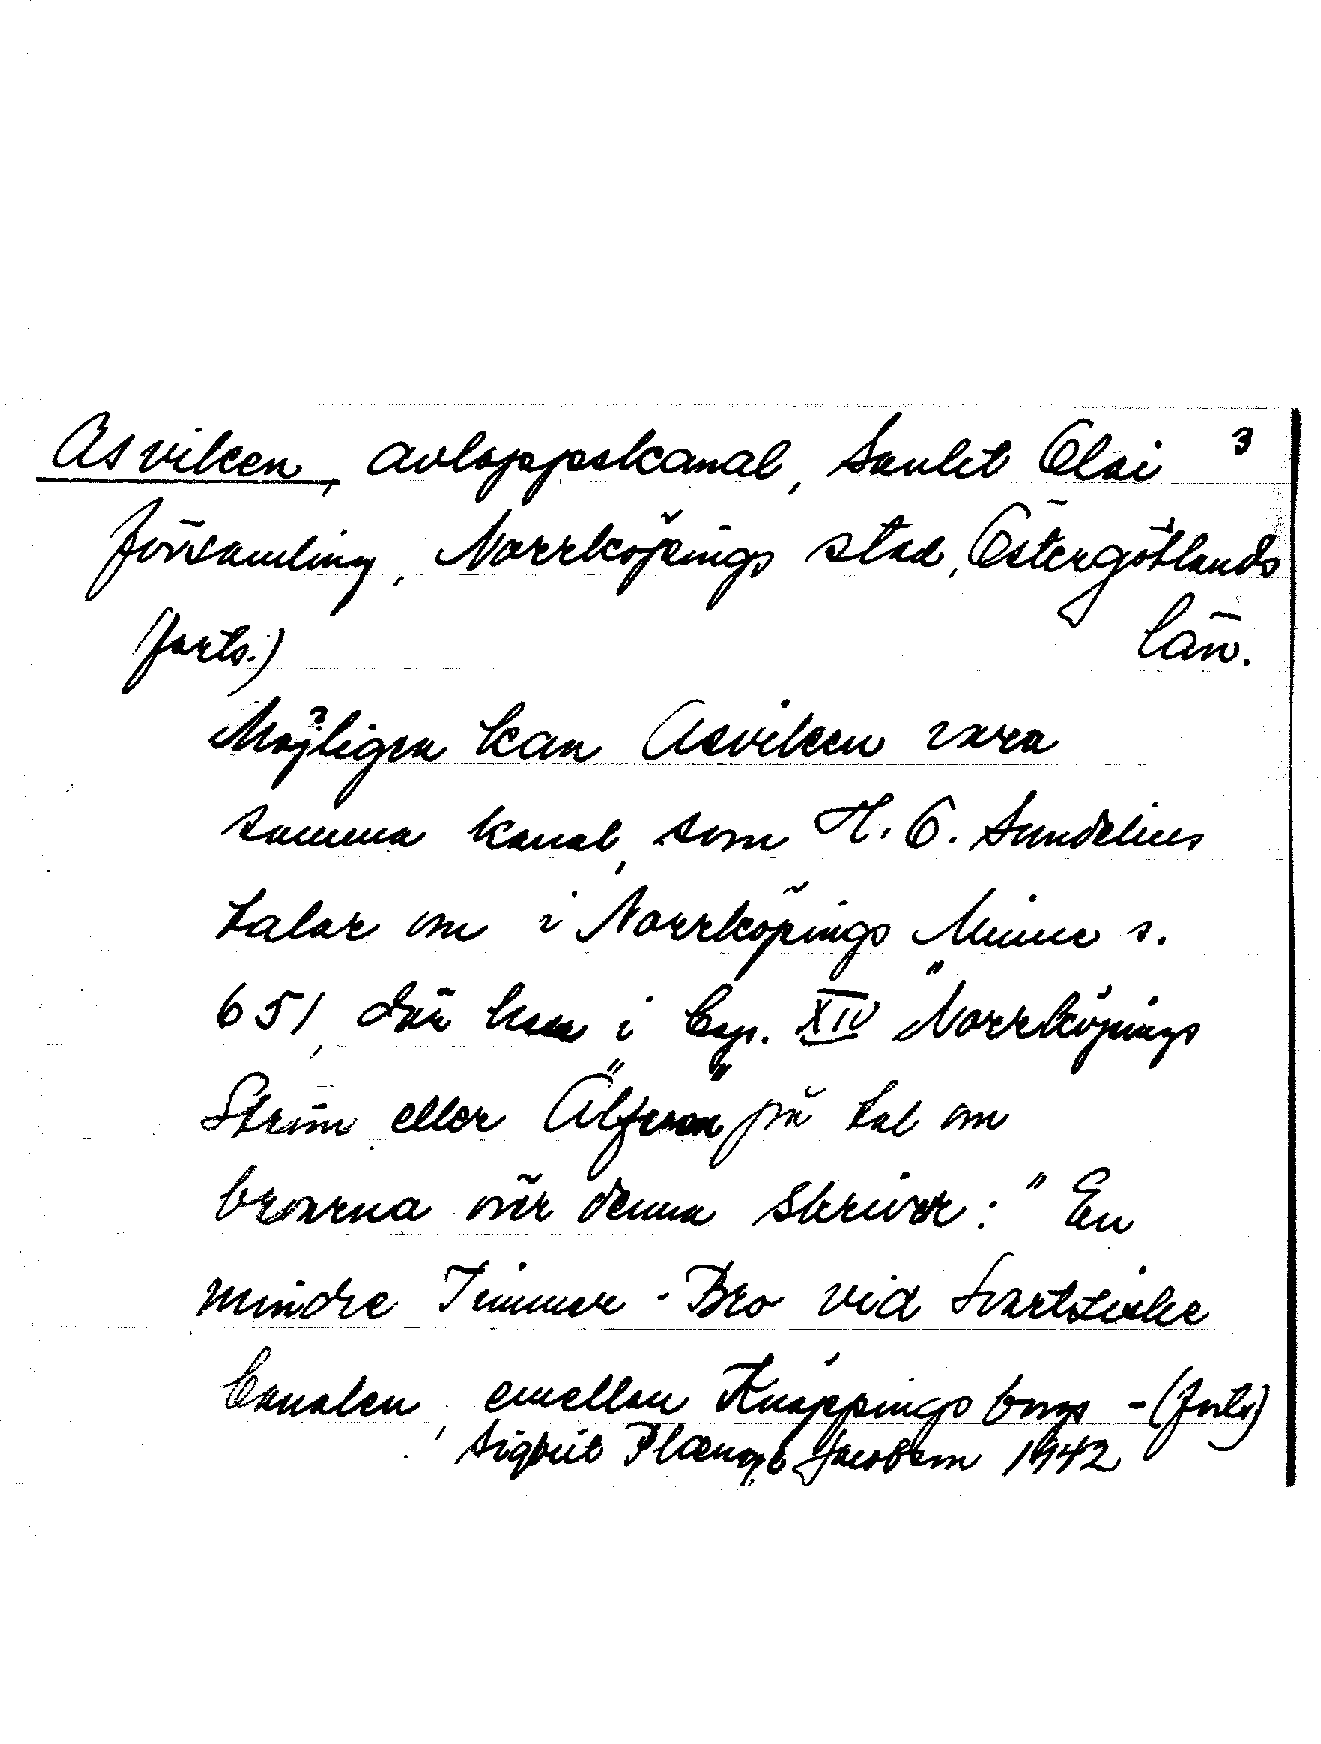 Asviken, avloppskanal, Sankt Olai 3
församling, Norrköpings stad, Östergötlands
forts.) län.
Möjligen kan Asviken vara
samma kanal, som H. O. Sundelius
talar om i Norrköpings Minne s.
651, där han i Cap. XIV "Norrköpings
Ström eller Älfven" på tal om
broarna över denna skriver: "En
mindre Timmer-Bro vid Svartviske
Canalen, emellan Knäppingsborgs -(forts)
Sigurd Jacobson 1942